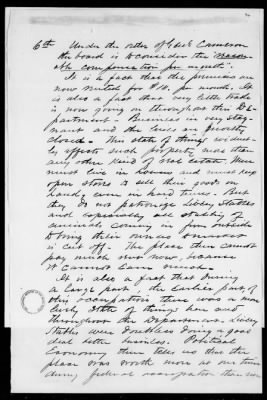 6th Under the order of Gen'l Cameron
the board is to consider the reason-
able compensation per month.
It is a fact that the premises are
now rented for $10. per month. It
is also a fact that very little trade
is now going on throughout this De-
partment - Business is very stag-
nant and the levees are mostly
closed. This state of things
affects such property more than
any other kind of real estate. Men
must live in houses and must keep
open stores to sell their goods on
hand, even in hard times. But
they do not patronize Livery Stables
and especially all stabling of
animals coming in from outside
is cut off. The place then cannot
pay much rent now, because
it cannot earn much.
It is also a fact that during
a large part, the earlier part, of
this occupation there was a more
lively state of things here and
throughout the Department. Livery
Stables were doubtless doing a good
deal better business. Political
Economy then tells us that the
place was worth more at one time
during federal occupation than now